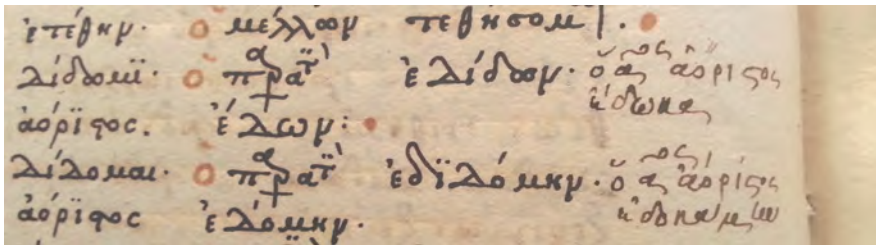 ἐτέθην· ὁ μέλλων τεθήσομ .
δίδωμϊ· ὁ πρατ ἐδίδων· ὁ ας ἀόριστος
ἔδωκα
ἀόρϊστος. ἔδων:
δίδομαι· ὁ πρατ ἐδϊδόμην· ὁ ας ἀόριστος
ἐδοκαμην
ἀόρϊστος ἐδόμην·